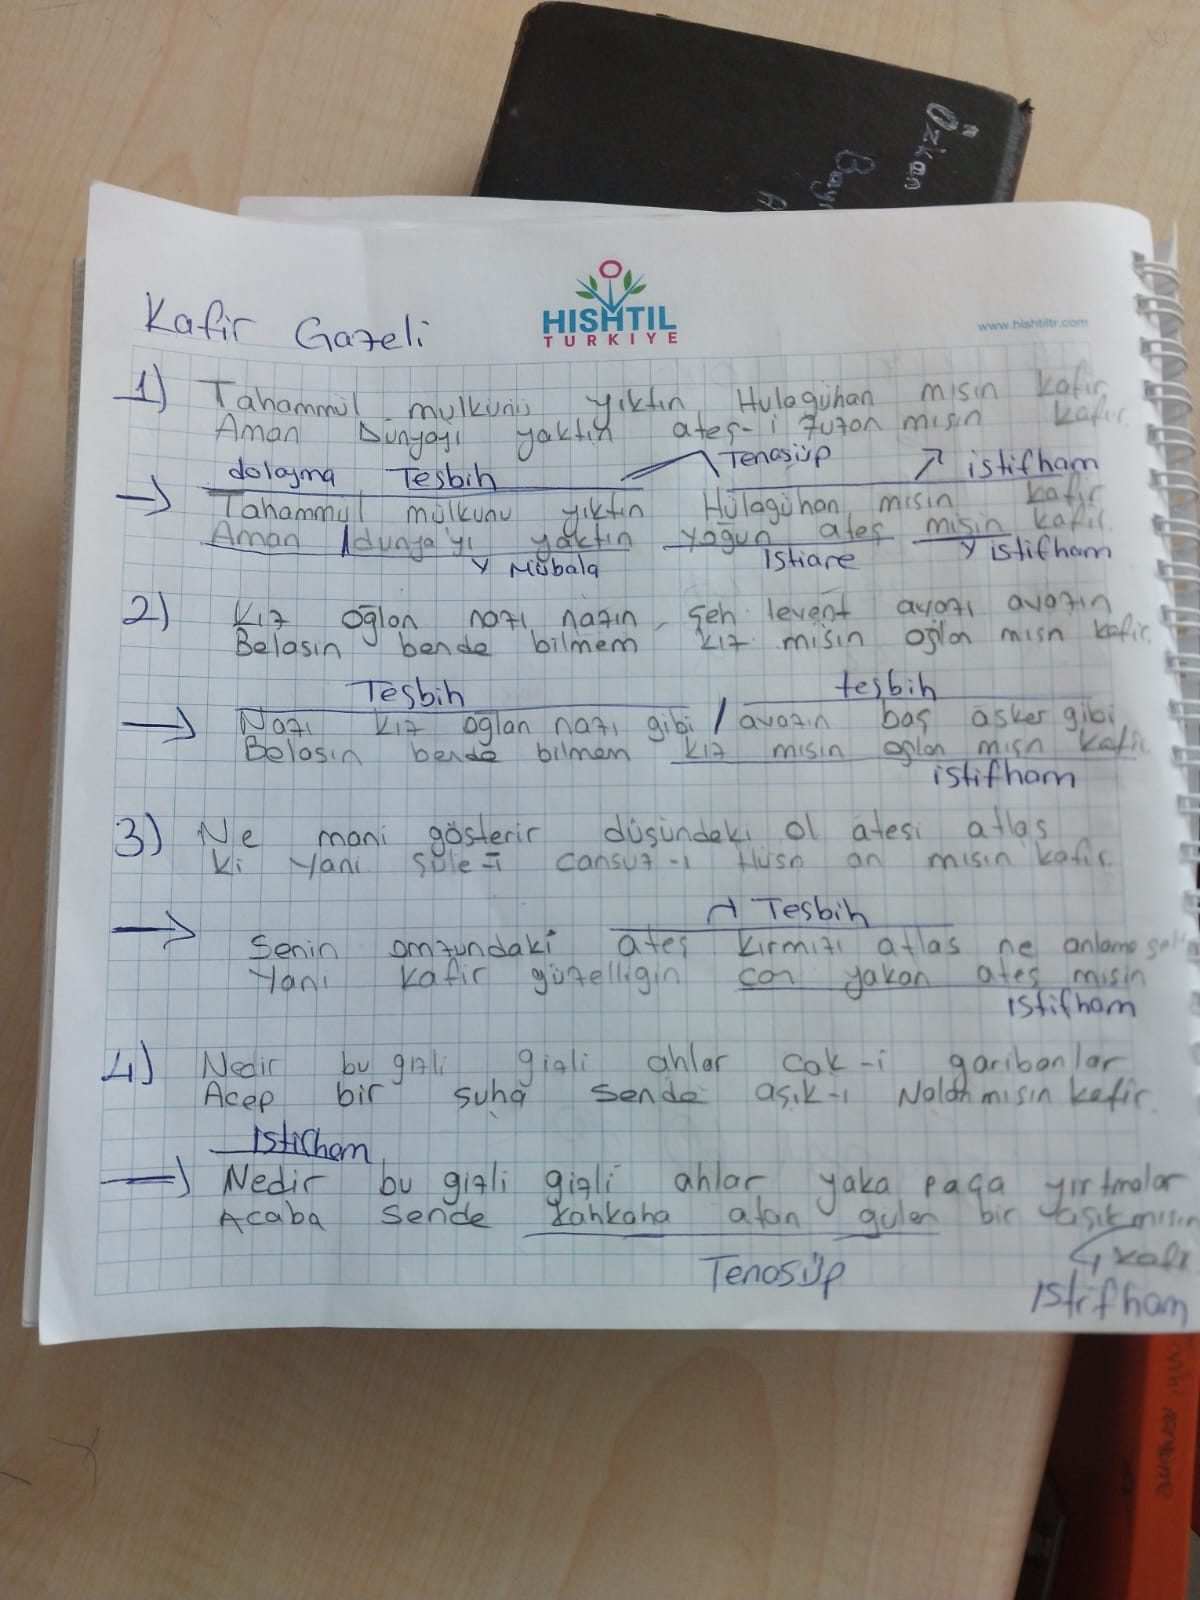 Özkan
Bay
A
HISHTIL
TURKIYE
www.hishtiltr.com
Kafir Gazeli
1) Tahammül mülkünü yıktın Hulagühan mısın kafir
Aman Dünyayı yaktın ateş-i suzan mısın kafir.
dolaşma Tesbih Tenasüp istifham
→ Tahammül mülkunu yıktın Hülagühan mısın kafir
Aman / dunya'yı yaktın yoğun ateş mısin kafir.
Mübala Istiare istifham
2) Kız oğlan nazı nazın, şeh levent avazı avazın
Belasın bende bilmem kız mısın oğlan mısn kafir.
Teşbih teşbih
→ Nazı kız oğlan nazı gibi / avazın baş asker gibi
Belasın bende bilmem kız mısın oğlan mısn kafir.
istifham
3) Ne mani gösterir düşündeki ol ateşi atlas
ki yani şule-i cansuz-ı Hüsn an mısın kafir.
Tesbih
→ Senin omzundaki ateş kırmızı atlas ne anlama
Yani kafir güzelligin can yakan ateş mısin
istifham
4) Nedir bu gizli gizli ahlar cak-i garibanlar
Acep bir şuha sende aşık-ı Nalan mısın kafir.
Istifham
→ Nedir bu gizli gizli ahlar yaka paça yırtmalar
Acaba sende kahkaha atan gülen bir aşık mısın
kafi
Tenasüp
istifham